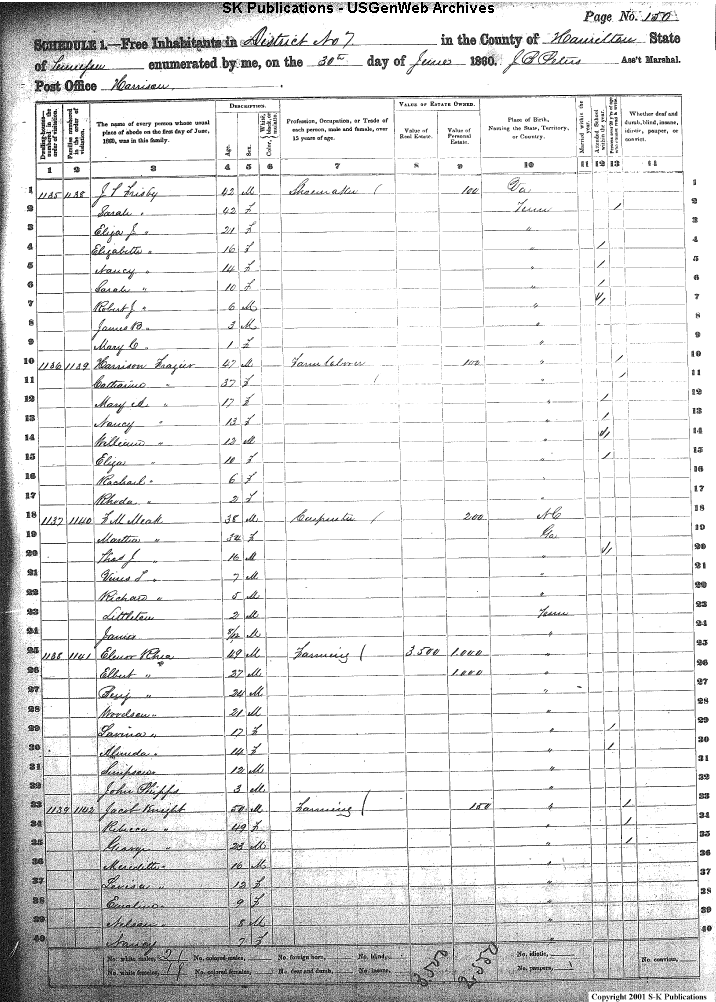 SK Publications - USGenWeb Archives
Page No. 150
SCHEDULE 1.—Free Inhabitants in District No 7 in the County of Hamilton State
of Tennessee enumerated by me, on the 30th day of June 1860. Ass't Marshal.
Post Office Harrison
Dwelling-houses—numbered in the order of visitation. Families numbered in the order of visitation. The name of every person whose usual place of abode on the first day of June, 1860, was in this family. DESCRIPTION. Age. Sex. Color, White, black, or mulatto. Profession, Occupation, or Trade of each person, male and female, over 15 years of age. VALUE OF ESTATE OWNED. Value of Real Estate. Value of Personal Estate. Place of Birth, Naming the State, Territory, or Country. Married within the year. Attended School within the year. Whether deaf and dumb, blind, insane, idiotic, pauper, or convict.
1 2 3 4 5 6 7 8 9 10 11 12 13 14
1 1135 1138 J L Frisby 42 M Shoemaker 100 Ga 1
2 Sarah " 42 F Tenn / 2
3 Eliza J " 21 F " 3
4 Elizabeth " 16 F " / 4
5 Nancy " 14 F " / 5
6 Sarah " 10 F " / 6
7 Robert J " 6 M " / 7
8 James B " 3 M " 8
9 Mary C " 1 F " 9
10 1136 1139 Harrison Frazier 47 M Farm Laborer 100 " / 10
11 Catharine " 37 F " / 11
12 Mary A " 17 F " / 12
13 Nancy " 13 F " / 13
14 William " 12 M " / 14
15 Eliza " 10 F " / 15
16 Rachael " 6 F " 16
17 Rhoda " 2 F " 17
18 1137 1140 F M Meak 38 M Carpenter 200 N C 18
19 Martha " 34 F Ga 19
20 Thos J " 16 M " / 20
21 " 7 M " 21
22 Richard " 5 M " 22
23 Littleton 2 M Tenn 23
24 James M " 24
25 1138 1141 Elenor Rhea 49 M Farming 3.500 1.000 " 25
26 Elbert " 27 M 1.000 " 26
27 Benj " 24 M " 27
28 Woodson " 21 M " 28
29 Lavina " 17 F " / 29
30 Almeda " 14 F " / 30
31 Simpson 12 M " 31
32 John Phipps 3 M " 32
33 1139 1142 Jacob Knight 50 M Farming 150 " / 33
34 Rebecca " 49 F " / 34
35 George " 23 M " / 35
36 Meredith " 16 M " 36
37 Louisa " 12 F " 37
38 Emaline " 9 F " 38
39 Nelson " 8 M " 39
40 Nancy " 7 F " 40
No. white males, 21 No. colored males, No. foreign born, No. blind, 3500 2550 No. idiotic, No. convicts,
No. white females, 19 No. colored females, No. deaf and dumb, No. insane, No. paupers,
Copyright 2001 S-K Publications